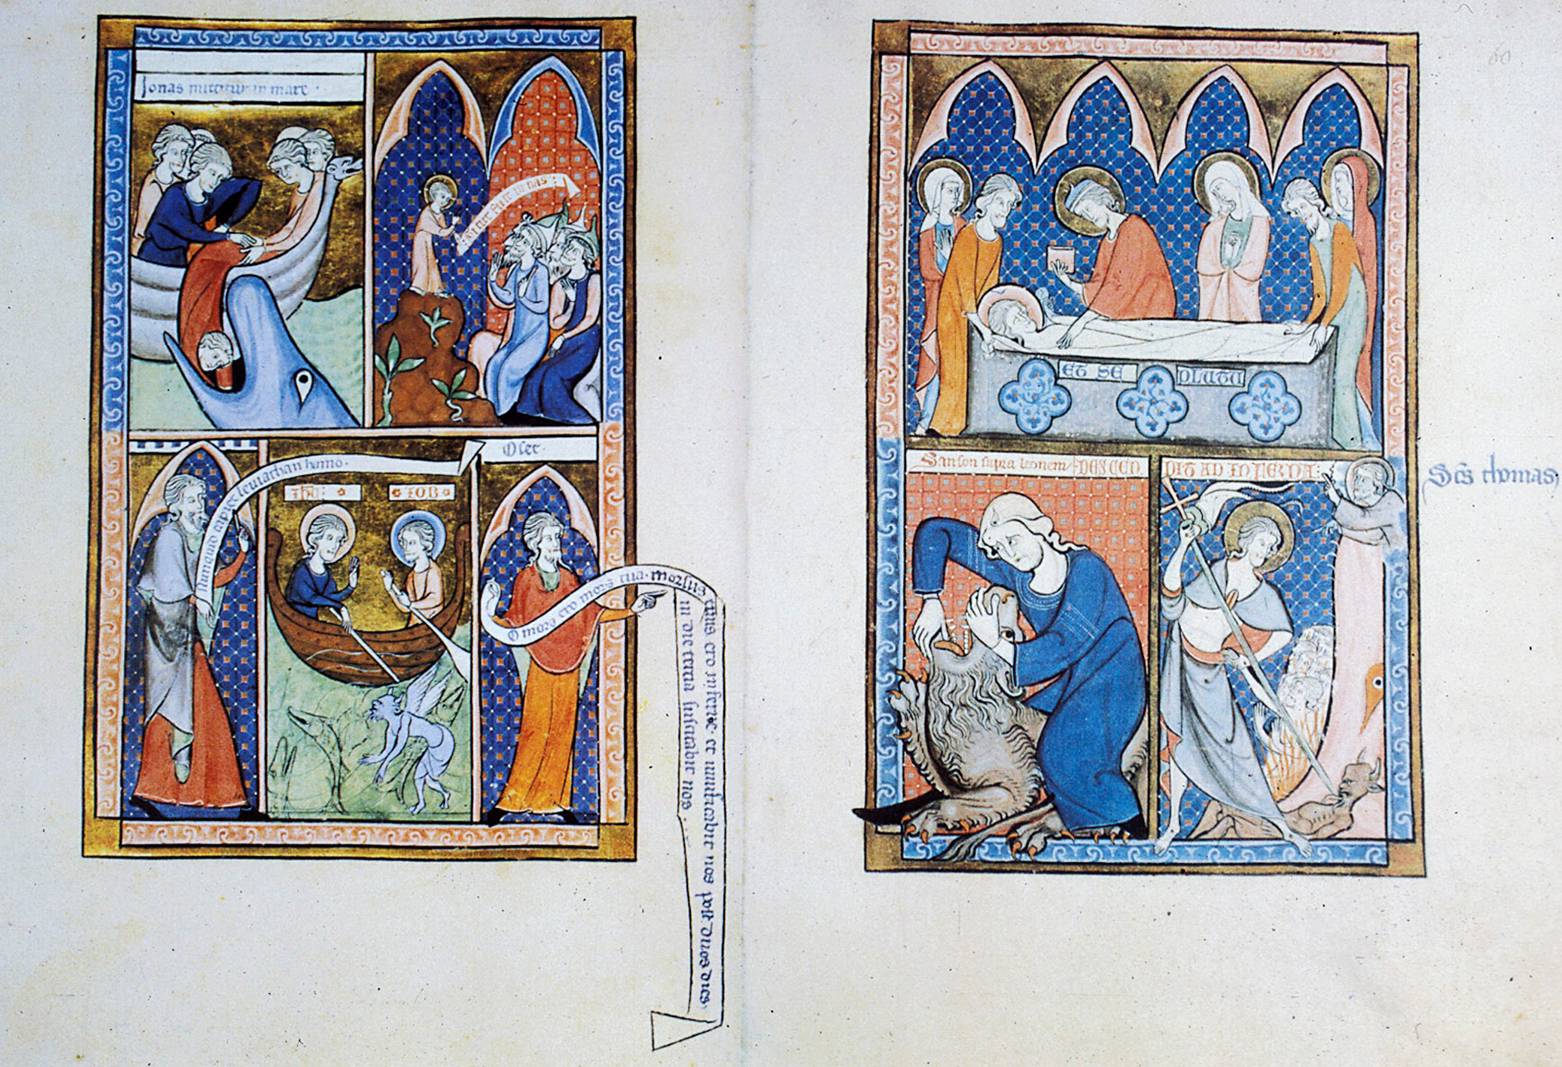 Jonas mittitur in mare
Numquid capiet leuiathan hamo
IOB
Osee
O mors ero mors tua · morsus
tuus ero inferne · et uiuificabit nos post duos dies
in die tercia suscitabit nos
ET SE
PULTU
Sanson supra leonem
DESCEN
DIT AD INFERNA
Scs thomas